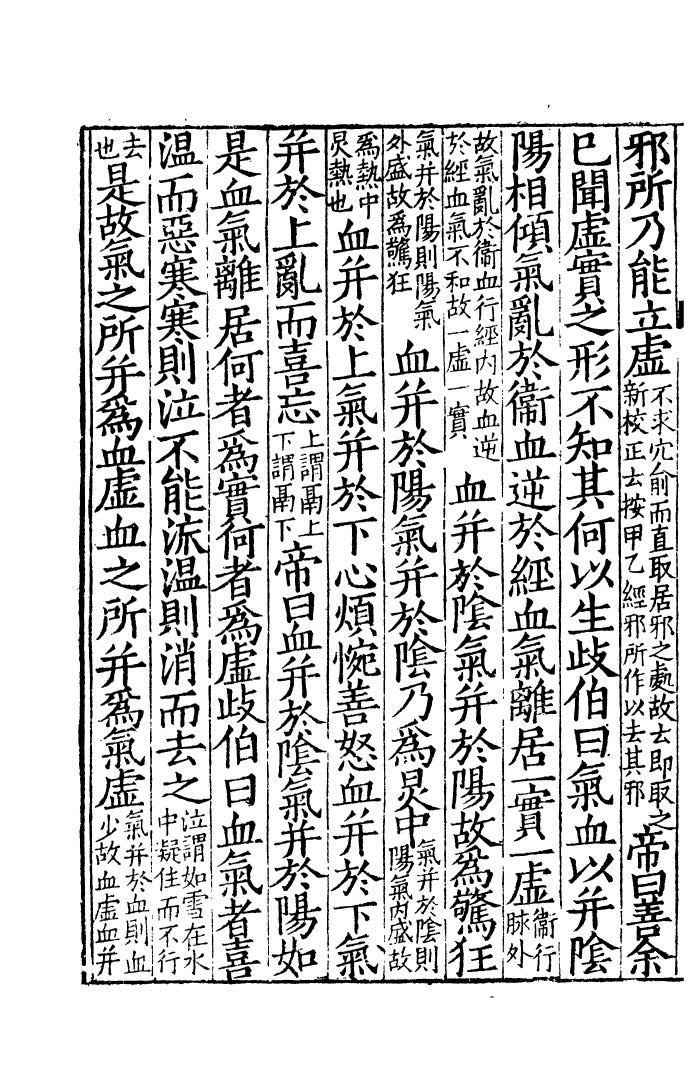 邪所乃能立虛不求穴俞而直取居邪之處故云即取之新校正云按甲乙經邪所作以去其邪帝曰善余
已聞虛實之形不知其何以生歧伯曰氣血以并陰
陽相傾氣亂於衞血逆於經血氣離居一實一虛衞行脉外
故氣亂於衞血行經內故血逆於經血氣不和故一虛一實血并於陰氣并於陽故爲驚狂
氣并於陽則陽氣外盛故爲驚狂血并於陽氣并於陰乃爲炅中氣并於陰則陽氣內盛故
爲熱中炅熱也血并於上氣并於下心煩惋善怒血并於下氣
并於上亂而喜忘上謂鬲上下謂鬲下帝曰血并於陰氣并於陽如
是血氣離居何者爲實何者爲虛歧伯曰血氣者喜
温而惡寒寒則泣不能流温則消而去之泣謂如雪在水中凝住而不行
去也是故氣之所并爲血虛血之所并爲氣虛氣并於血則血少故血虛血并